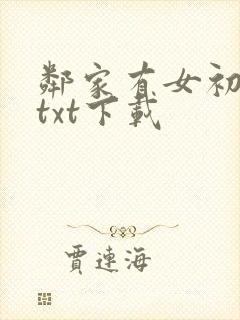 鄰家有女初
txt下載
賈連海